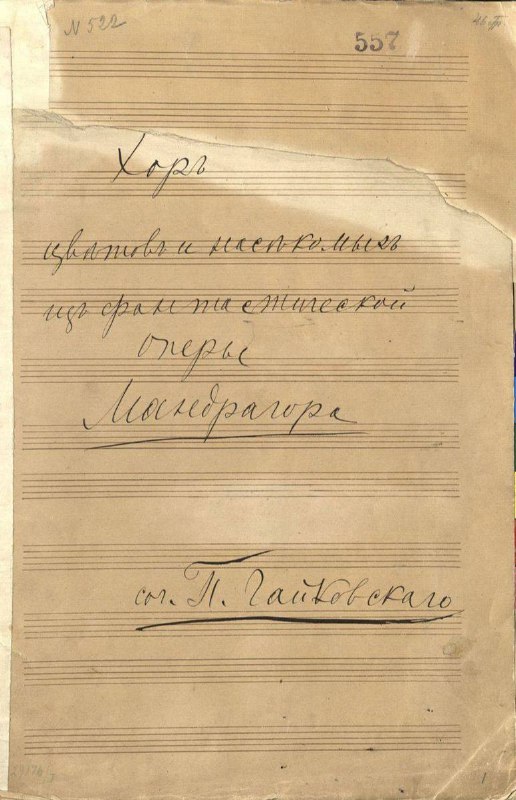 N 522
557
Хоръ
цвѣтовъ и насѣкомыхъ
изъ фантастической
оперы
Мандрагора
соч. П. Чайковскаго
1